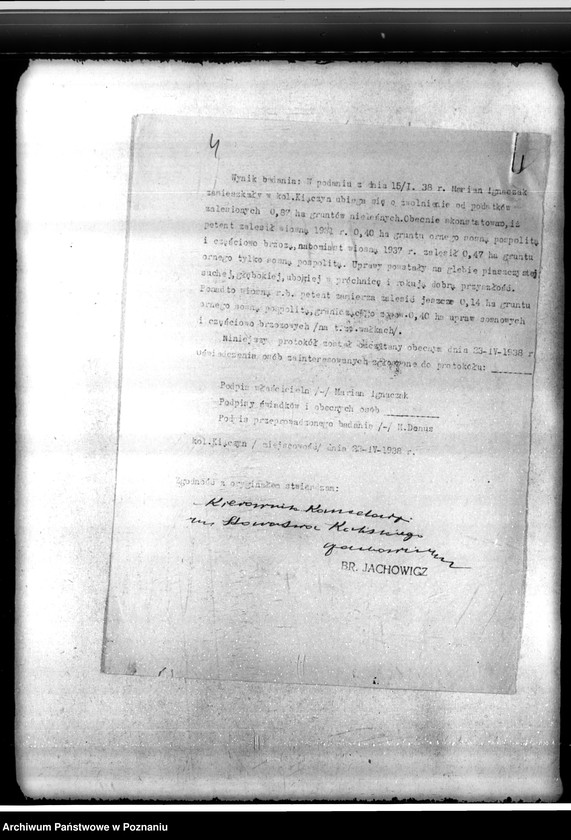 4
Wynik badania: W podaniu z dnia 15/I. 38 r. Marian Ignaczak
zamieszkały w kol. Kiączyn ubiega się o zwolnienie od podatków
zalesionych 0,87 ha gruntów nieleśnych. Obecnie skonstatowano, iż
petent zalesił wiosną r. 0,40 ha gruntu ornego sosną pospolitą
i częściowo brzozą, natomiast wiosną 1937 r. zalesił 0,47 ha gruntu
ornego tylko sosną pospolitą. Uprawy powstały na glebie piaszczystej
suchej, głębokiej, ubogiej w próchnicę i rokują dobrą przyszłość.
Ponadto wiosną r.b. petent zamierza zalesić jeszcze 0,14 ha gruntu
ornego sosną pospolitą, graniczącego 0,40 ha upraw sosnowych
i częściowo brzozowych /na t. zw. wałkach/.
Niniejszy protokół został odczytany obecnym dnia 23-IV-1938 r.
oświadczenie osób zainteresowanych zgłoszone do protokołu:
Podpis właściciela /-/ Marian Ignaczak
Podpisy świadków i obecnych osób
Podpis przeprowadzonego badanie /-/ M. Donus
kol. Kiączyn / miejscowość/ dnia 23-IV-1938 r.
Zgodność z oryginałem stwierdzam:
Kierownik Kancelarji
Starostwa Kaliskiego
BR. JACHOWICZ
Archiwum Państwowe w Poznaniu